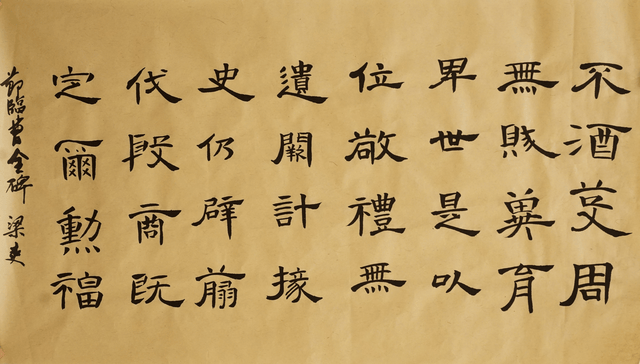 不酒芟周
無賊冀育
早世是以
位敬禮無
遺闕計掾
史仍辟翦
伐殷商既
定爾勳福
節臨曹全碑 梁